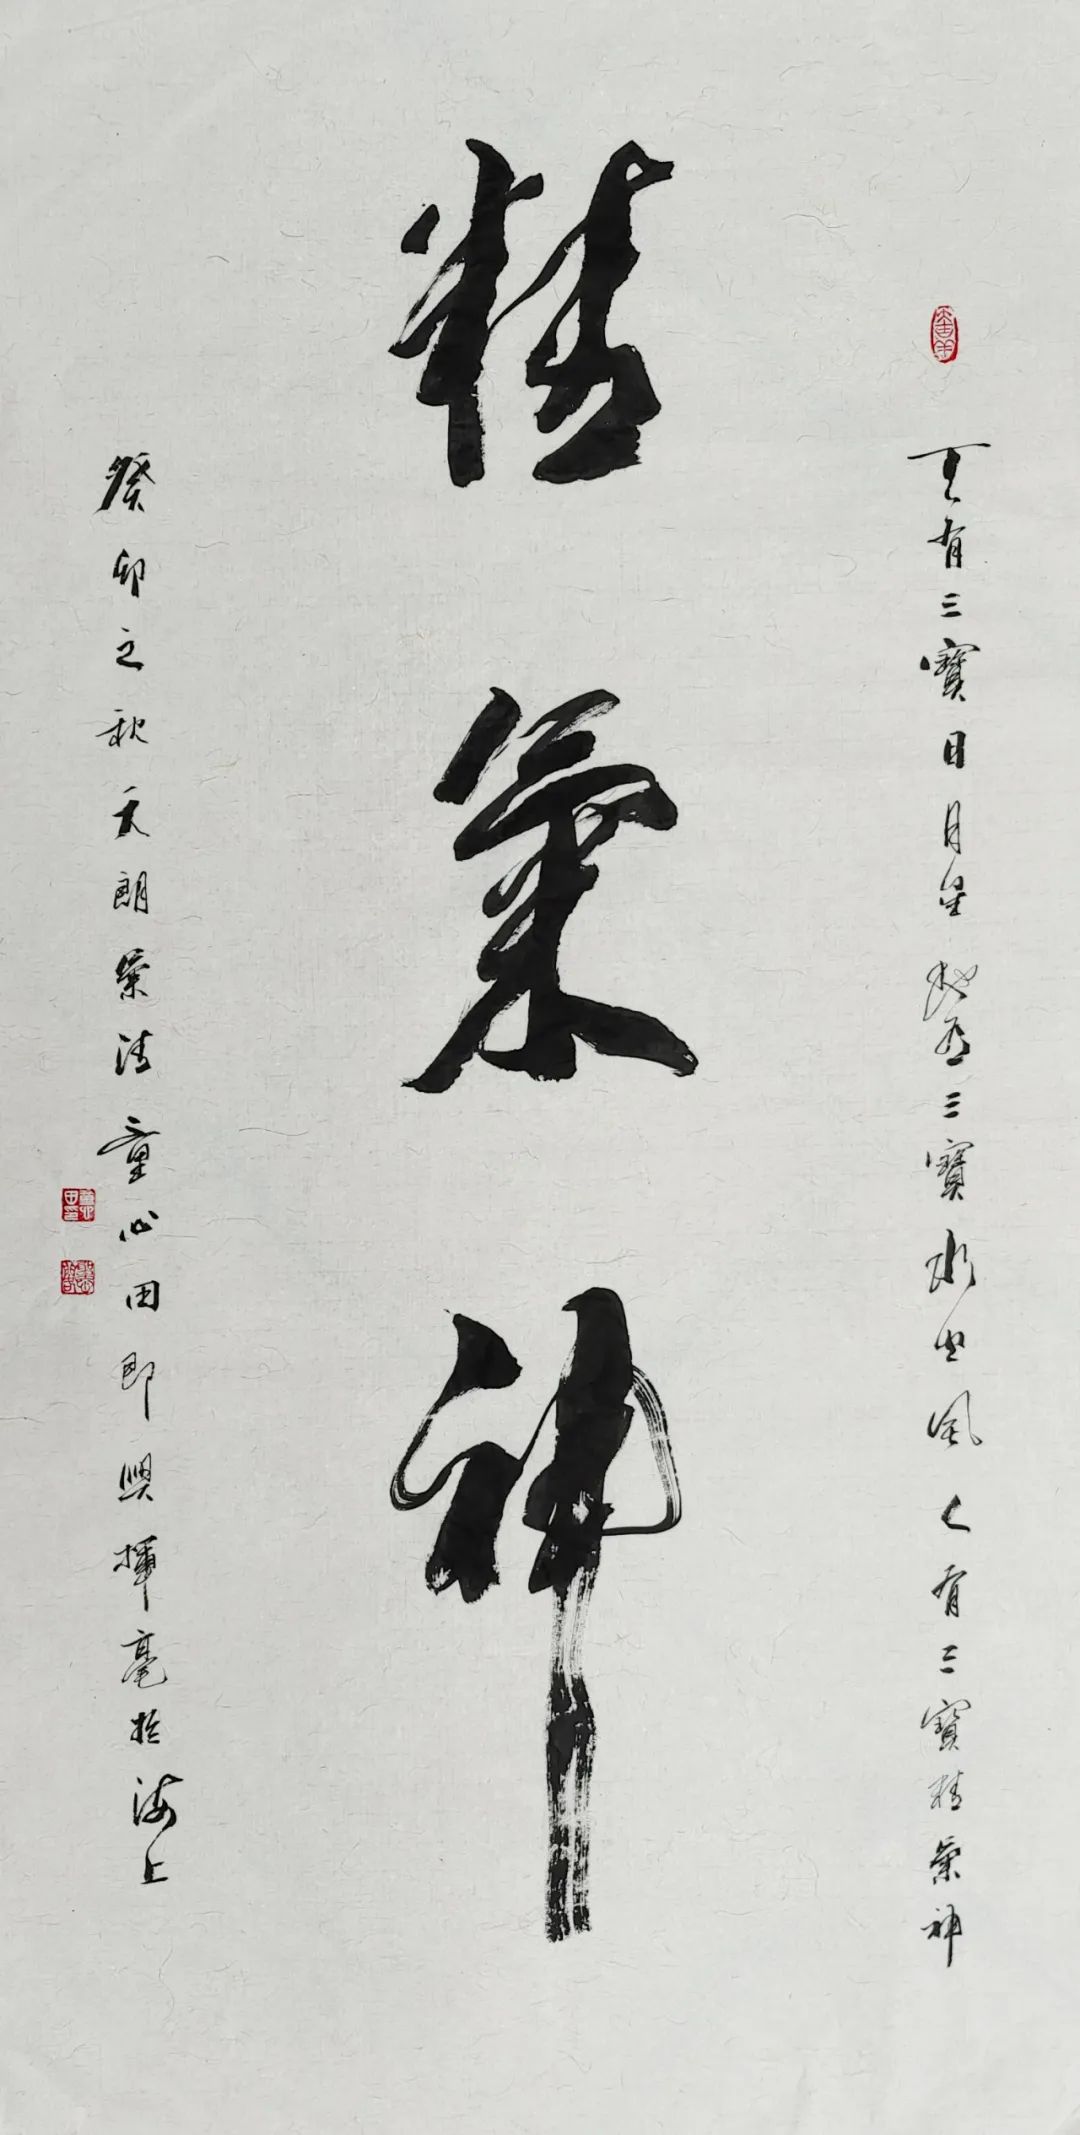 天有三寶日月星地有三寶水火風人有三寶精氣神
精氣神
癸卯之秋天朗氣清童心田即興揮毫於海上